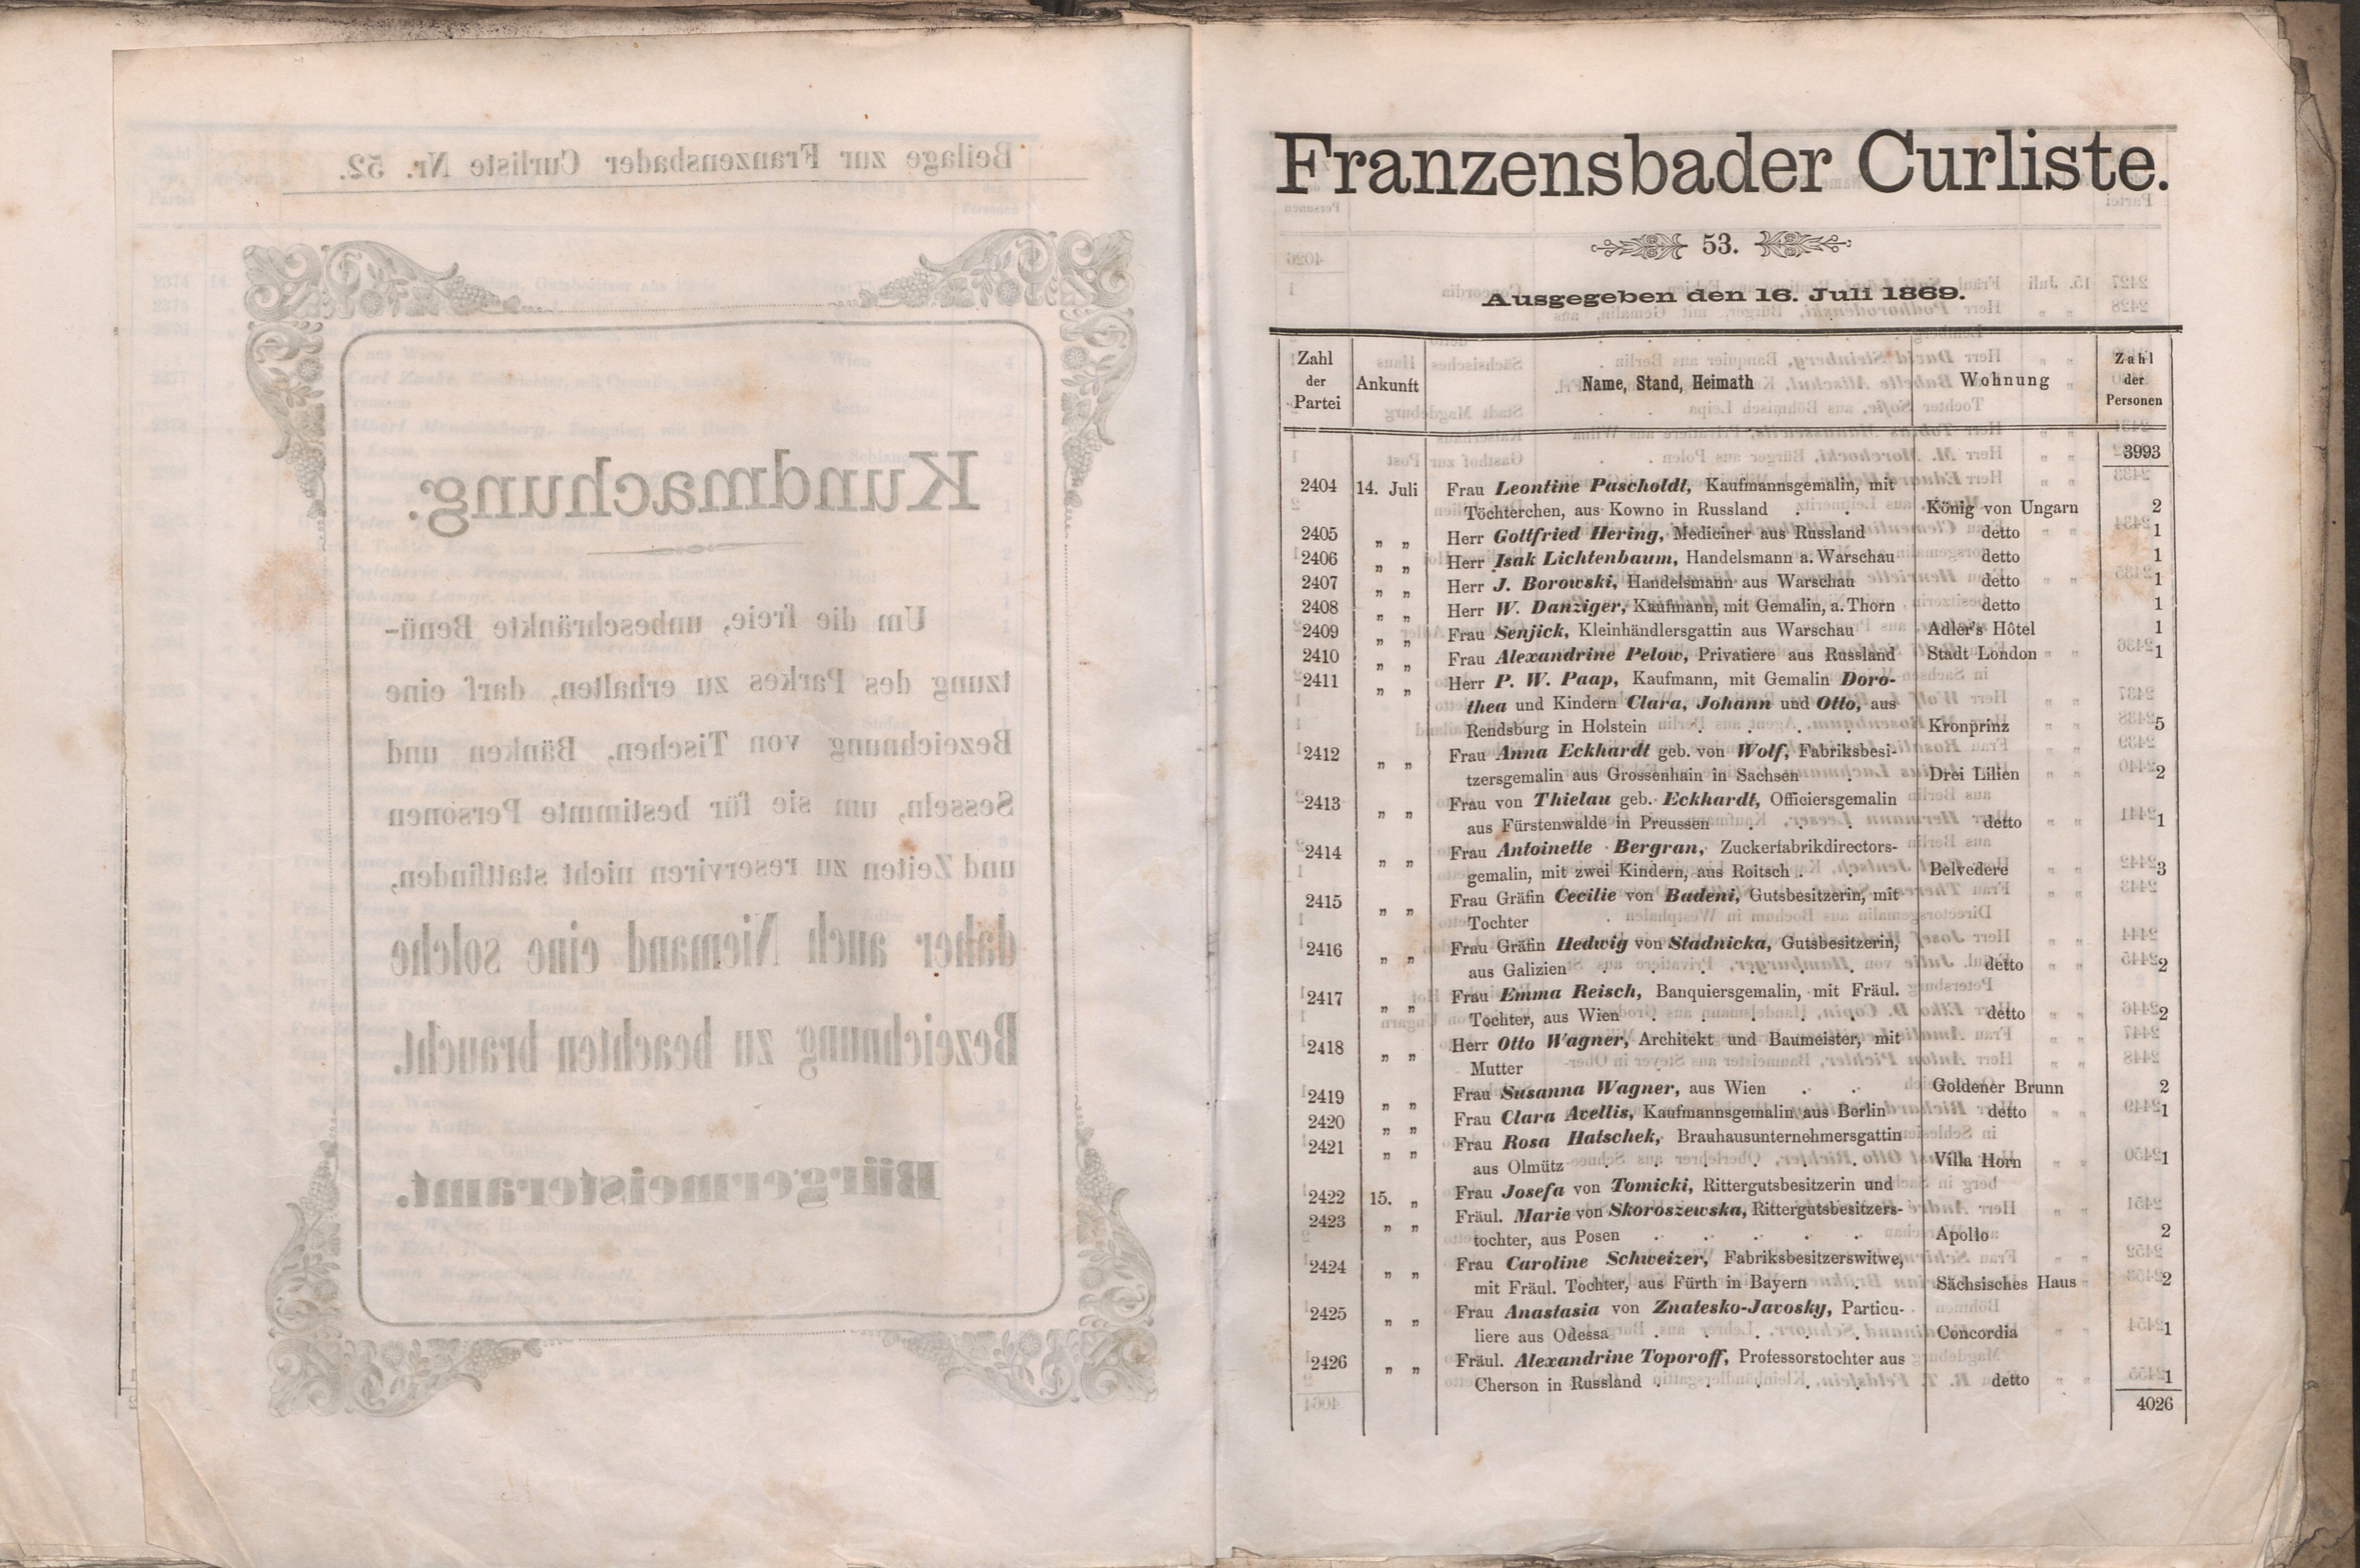 Beilage zur Franzensbader Curliste Nr. 52.
Kundmachung.
Um die freie, unbeschränkte Benü-
tzung des Parkes zu erhalten, darf eine
Bezeichnung von Tischen, Bänken und
Sesseln, um sie für bestimmte Personen
und Zeiten zu reserviren nicht stattfinden,
daher auch Niemand eine solche
Bezeichnung zu beachten braucht.
Bürgermeisteramt.
Franzensbader Curliste.
53.
Ausgegeben den 16. Juli 1869.
Zahl der Partei Ankunft Name, Stand, Heimath Wohnung Zahl der Personen
3993
2404 14. Juli Frau Leontine Pascholdt, Kaufmannsgemalin, mit
Töchterchen, aus Kowno in Russland . . König von Ungarn 2
2405 „ „ Herr Gottfried Hering, Mediciner aus Russland detto 1
2406 „ „ Herr Isak Lichtenbaum, Handelsmann a. Warschau detto 1
2407 „ „ Herr J. Borowski, Handelsmann aus Warschau detto 1
2408 „ „ Herr W. Danziger, Kaufmann, mit Gemalin, a. Thorn detto 1
2409 „ „ Frau Senjick, Kleinhändlersgattin aus Warschau Adler's Hôtel 1
2410 „ „ Frau Alexandrine Pelow, Privatiere aus Russland Stadt London 1
2411 „ „ Herr P. W. Paap, Kaufmann, mit Gemalin Doro-
thea und Kindern Clara, Johann und Otto, aus
Rendsburg in Holstein . . . . Kronprinz 5
2412 „ „ Frau Anna Eckhardt geb. von Wolf, Fabriksbesi-
tzersgemalin aus Grossenhain in Sachsen . Drei Lilien 2
2413 „ „ Frau von Thielau geb. Eckhardt, Officiersgemalin
aus Fürstenwalde in Preussen . . . detto 1
2414 „ „ Frau Antoinette Bergran, Zuckerfabrikdirectors-
gemalin, mit zwei Kindern, aus Roitsch . . Belvedere 3
2415 „ „ Frau Gräfin Cecilie von Badeni, Gutsbesitzerin, mit
Tochter
2416 „ „ Frau Gräfin Hedwig von Stadnicka, Gutsbesitzerin,
aus Galizien . . . . . . detto 2
2417 „ „ Frau Emma Reisch, Banquiersgemalin, mit Fräul.
Tochter, aus Wien . . . . . detto 2
2418 „ „ Herr Otto Wagner, Architekt und Baumeister, mit
Mutter
2419 „ „ Frau Susanna Wagner, aus Wien . . Goldener Brunn 2
2420 „ „ Frau Clara Avellis, Kaufmannsgemalin aus Berlin detto 1
2421 „ „ Frau Rosa Hatschek, Brauhausunternehmersgattin
aus Olmütz . . . . . . Villa Horn 1
2422 15. „ Frau Josefa von Tomicki, Rittergutsbesitzerin und
2423 „ „ Fräul. Marie von Skoroszewska, Rittergutsbesitzers-
tochter, aus Posen . . . . . Apollo 2
2424 „ „ Frau Caroline Schweizer, Fabriksbesitzerswitwe,
mit Fräul. Tochter, aus Fürth in Bayern . Sächsisches Haus 2
2425 „ „ Frau Anastasia von Znatesko-Javosky, Particu-
liere aus Odessa . . . . . Concordia 1
2426 „ „ Fräul. Alexandrine Toporoff, Professorstochter aus
Cherson in Russland . . . . . detto 1
4026